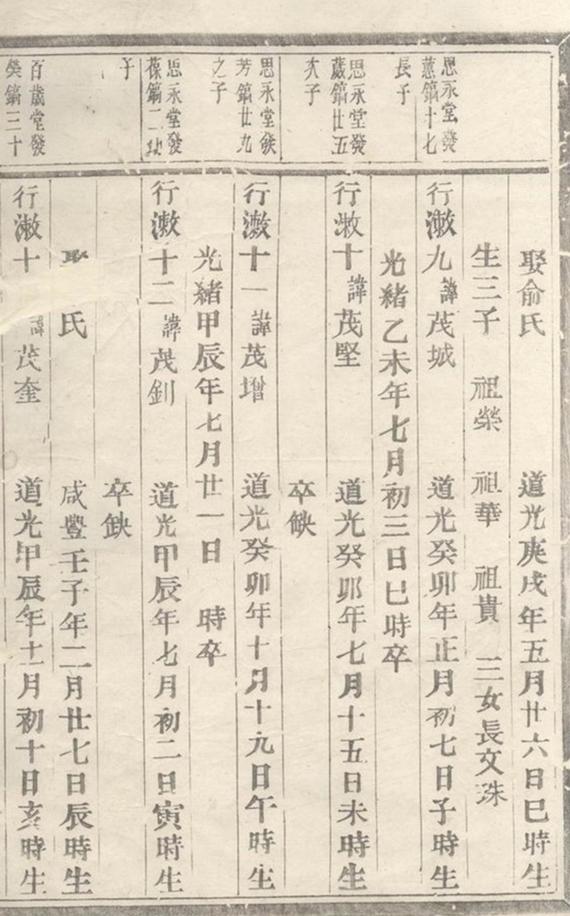 娶俞氏 道光庚戌年五月廿六日巳時生
生三子 祖榮 祖華 祖貴 三女長文珠
思永堂發
蕙鎬十七
長子
行漖九 諱茂城 道光癸卯年正月初七日子時生
光緒乙未年七月初三日巳時卒
思永堂發
葳鎬廿五
次子
行漖十 諱茂堅 道光癸卯年七月十五日未時生
卒缺
思永堂發
芳鎬廿九
之子
行漖十一 諱茂增 道光癸卯年十月十九日午時生
光緒甲辰年七月廿一日 時卒
思永堂發
葆鎬二
子
行漖十二 諱茂釗 道光甲辰年七月初二日寅時生
卒缺
娶 氏 咸豐壬子年二月廿七日辰時生
百歲堂發
癸鎬三十
行漖十 諱茂奎 道光甲辰年十一月初十日亥時生